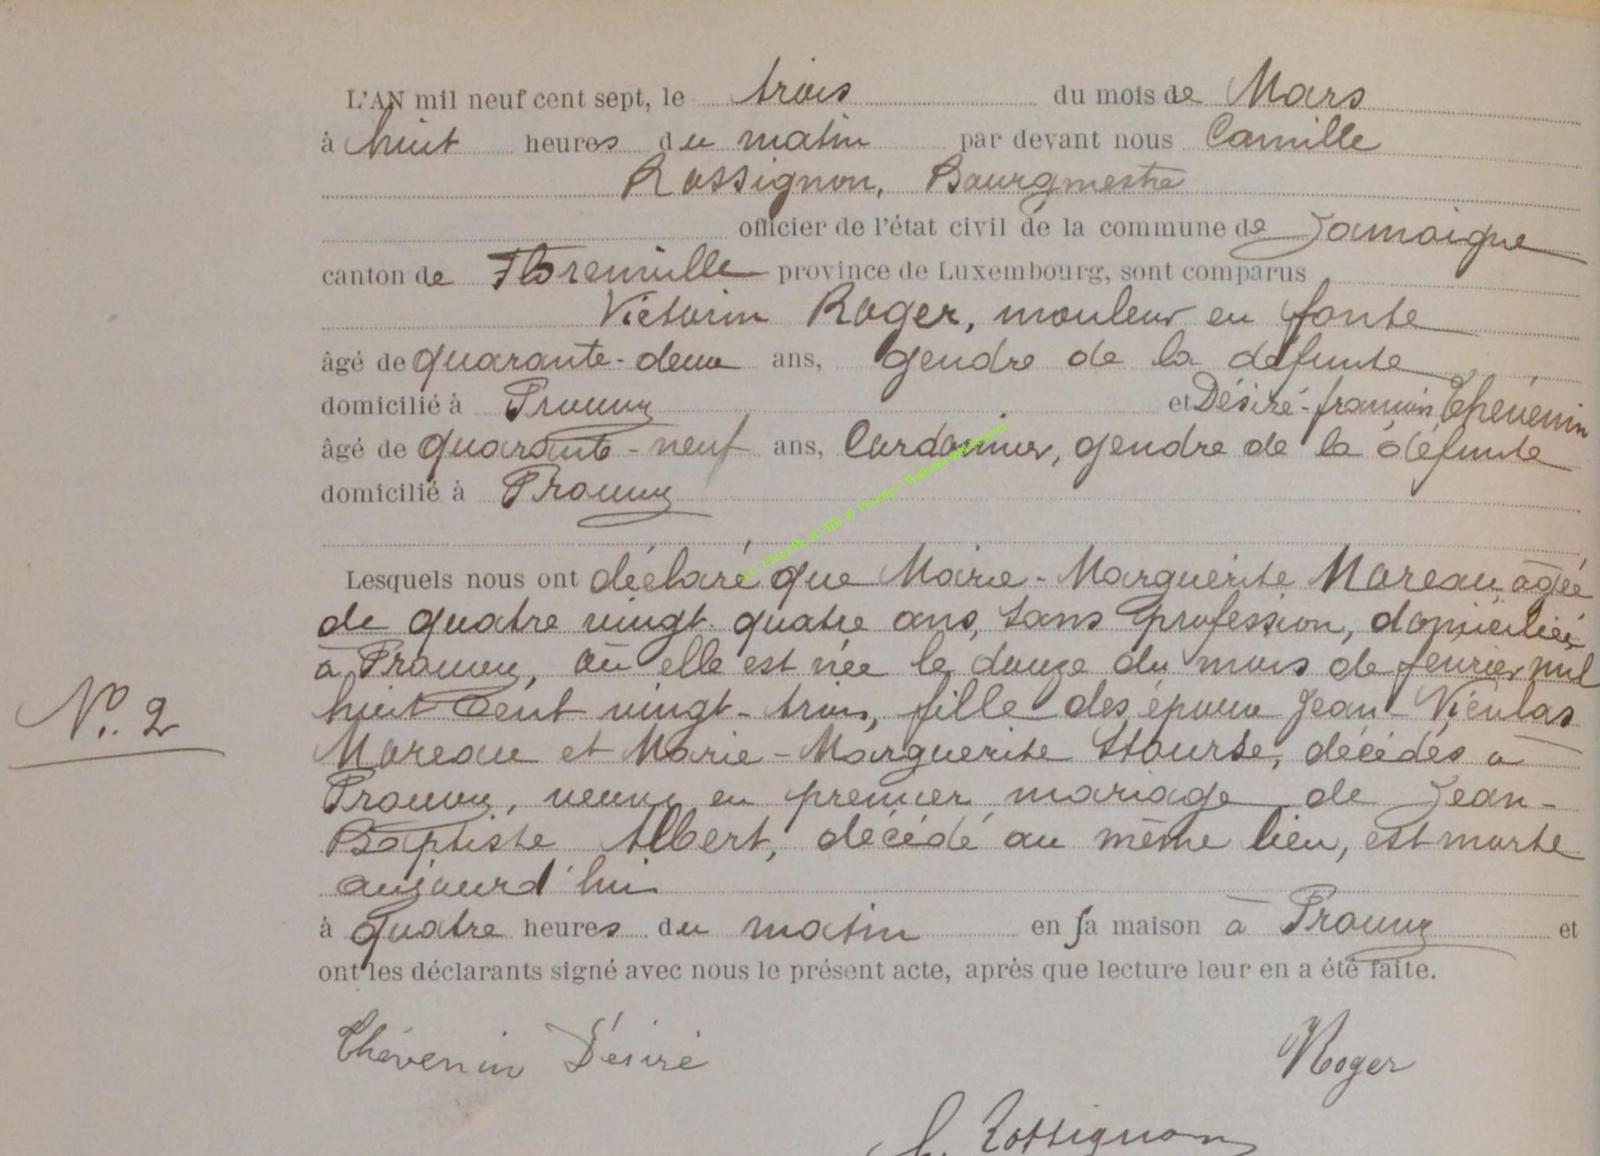 L'AN mil neuf cent sept, le trois du mois de Mars
à huit heures du matin par devant nous Camille
Rossignon, Bourgmestre
officier de l'état civil de la commune de Jamoigne
canton de Florenville province de Luxembourg, sont comparus
Victorin Roger, mouleur en fonte
âgé de quarante-deux ans, gendre de la défunte
domicilié à Prouvy et Désiré-françois Thévenin
âgé de quarante-neuf ans, Cordonnier, gendre de la défunte
domicilié à Prouvy
Lesquels nous ont déclaré que Marie-Marguerite Moreau, agée
de quatre vingt-quatre ans, sans profession, domiciliée
à Prouvy, où elle est née le douze du mois de fevrier mil
huit Cent vingt-trois, fille des époux Jean-Nicolas
Moreau et Marie-Marguerite, décédés à
Prouvy, veuve en premier mariage de Jean-
Baptiste Albert, décédé au même lieu, est morte
aujourd'hui
N°. 2
à quatre heures du matin en sa maison à Prouvy et
ont les déclarants signé avec nous le présent acte, après que lecture leur en a été faite.
Thévenin Désiré
VRoger
C. Rossignon